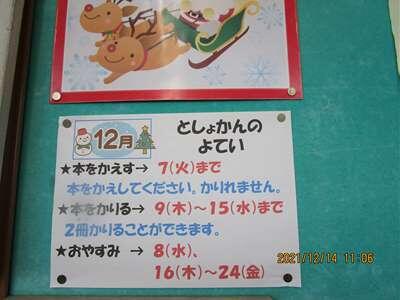 12月
としょかんの
よてい
★本をかえす→ 7(火)まで
本をかえしてください。かりれません。
★本をかりる→ 9(木)〜15(水)まで
2冊かりることができます。
★おやすみ → 8(水)、
16(木)〜24(金)
2021/12/14 11:06